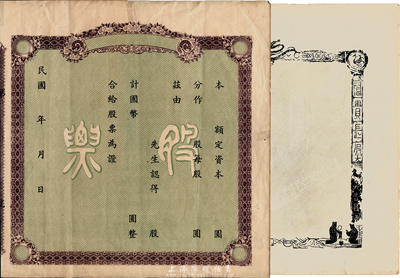 本　額定資本　圓
分作　股每股　圓
茲由　先生認得　股
計國幣　圓整
合給股票為證
民國　年　月　日
股票